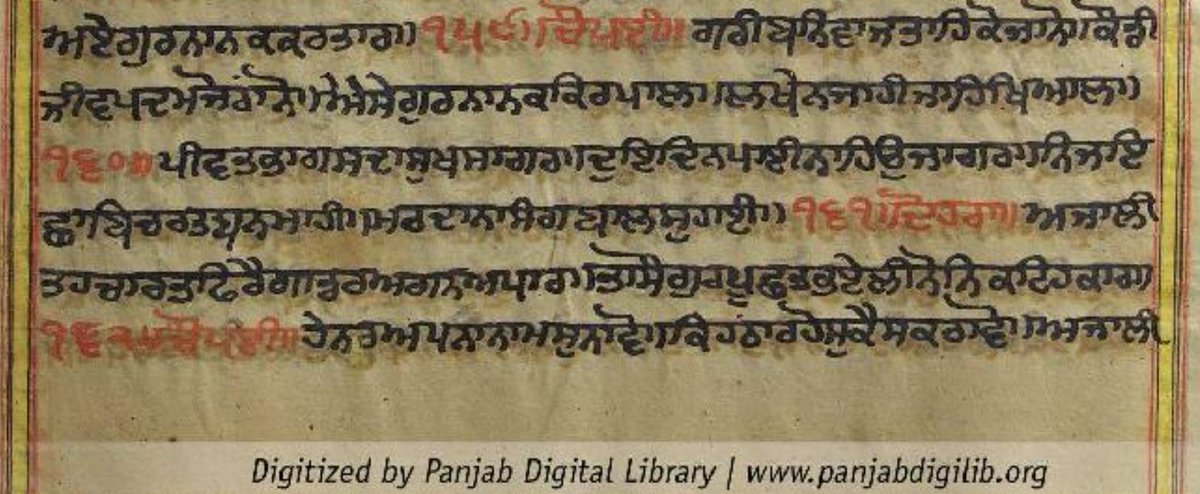 ਅਏਗੁਰਨਾਨਕਕਰਤਾਰ॥੧੫੯॥ਚੌਪਈ॥ ਗਰੀਬਨਿਵਾਜਤਾਹਿਕੋਜਾਨੋ॥ਕੌਤੀ
ਜੀਵਪਦਮੌ ਐਸੇਗੁਰਨਾਨਕਕਿਰਪਾਲਾ॥ਲਖੈਨਜਾਹੀਜਾਹਿਖਿਆਲਾ॥
੧੬੦॥ਪੀਵਤਭਾਗਸਦਾਸੁਖਸਾਗਰ॥ਦੁਇਦਿਨਪਾਈਨਾਹਿਉਜਾਗਰ॥ਨਿਜਾਇ
ਚਰਤਬਨਮਾਹੀ॥ਮਰਦਾਨਾਸੰਗਬਾਲਸੁਹਾਈ॥੧੬੧॥ਦੋਹਰਾ॥ਅਜਾਲੀ
ਤਹਚਾਰਤ ਅਗਨਅਪਾਰ॥ਤੋਸੋਗੁਰਪੂਛਤਭਏਲੀਨੋਨਿਕਟਿਹਕਾਰ॥
੧੬੨॥ਚੌਪਈ॥ਹੇਨਰਅਪਨਾਨਾਮਸੁਨਾਵੋ॥ਕਿਹਠਾਰਹੋਸੁਕੈਸਕਰਾਵੋ॥ਅਜਾਲੀ
Digitized by Panjab Digital Library | www.panjabdigilib.org